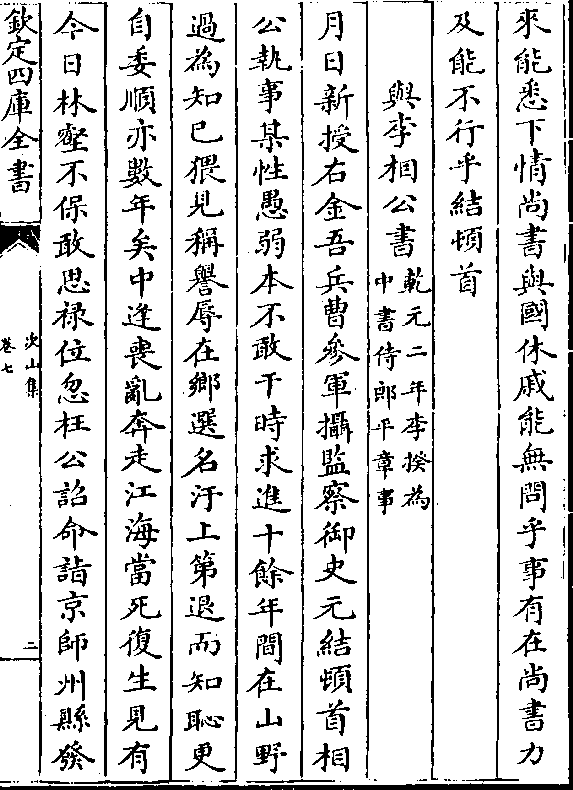 來能悉下情尚書與國休戚能無問乎事有在尚書力
及能不行乎結頓首
與李相公書乾元二年李揆為
中書侍郎平章事
月日新授右金吾兵曹參軍攝監察御史元結頓首相
公執事某性愚弱本不敢干時求進十餘年間在山野
過為知己猥見稱譽辱在鄉選名汙上第退而知恥更
自委順亦數年矣中逢喪亂奔走江海當死復生見有
今日林壑不保敢思祿位忽枉公詔命詣京師州縣發
欽定四庫全書
次山集
卷七
二